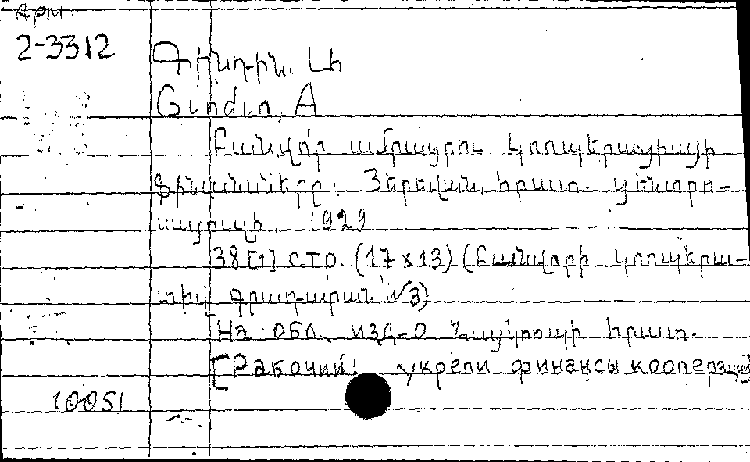 Арм.
2-3312
Գինդին, Ա
Gindin, A
Բանվո՛ր ամրացրու կոոպերացիայի
ֆինանսները. Յերեվան, հրատ.
1929
38[1] стр. (17x13) (Բանվորի կոոպերա-
տիվ գրադարան №3)
На обл. изд-о հրատ.
[Рабочий! укрепи финансы кооперации
10051